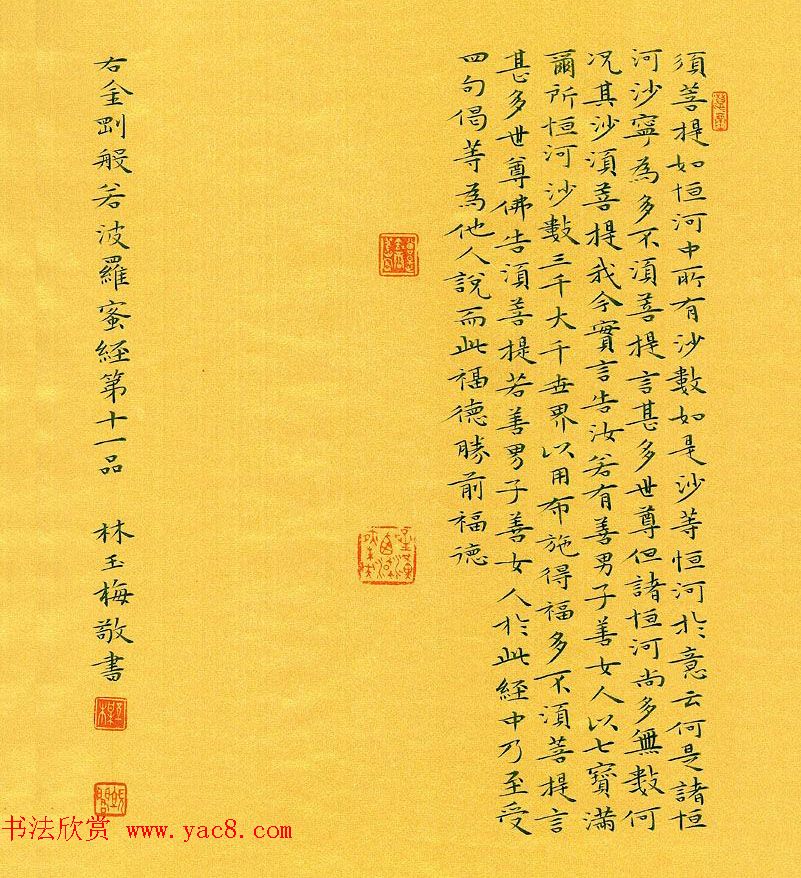 須菩提如恒河中所有沙數如是沙等恒河於意云何是諸恒
河沙寧為多不須菩提言甚多世尊但諸恒河尚多無數何
况其沙須菩提我今實言告汝若有善男子善女人以七寶滿
爾所恒河沙數三千大千世界以用布施得福多不須菩提言
甚多世尊佛告須菩提若善男子善女人於此經中乃至受
四句偈等為他人說而此福德勝前福德
右金剛般若波羅蜜經第十一品 林玉梅敬書
书法欣赏 www.yac8.com